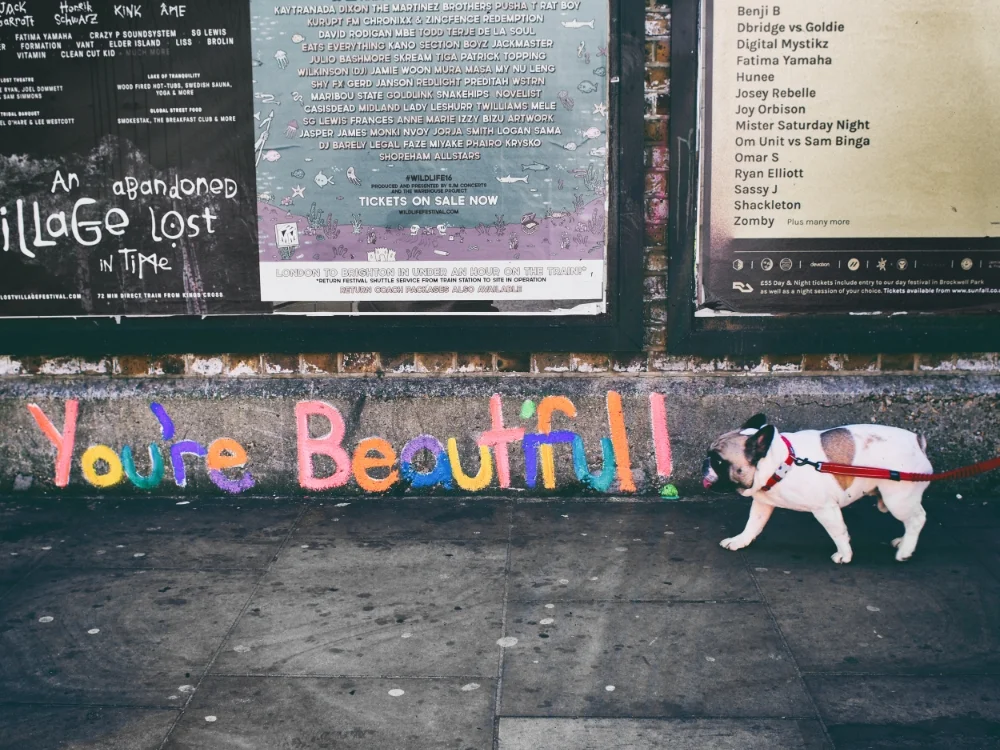 JACK
GARRATT
Henrik
Schwarz
KiNK
ÂME
FATIMA YAMAHA CRAZY P SOUNDSYSTEM SG LEWIS
FORMATION VANT ELDER ISLAND LISS BROLIN
VITAMIN CLEAN CUT KID + MUCH MORE
LOST THEATRE
RYAN, JOEL DOMMETT
SAM SIMMONS
TRIBAL BANQUET
O'HARE & LEE WESTCOTT
LAKE OF TRANQUILITY
WOOD FIRED HOT-TUBS, SWEDISH SAUNA,
YOGA & MORE
GLOBAL STREET FOOD
SMOKESTAK, THE BREAKFAST CLUB & MORE
An abandoned
village lost
in Time
LOSTVILLAGEFESTIVAL.COM 72 MIN DIRECT TRAIN FROM KINGS CROSS
KAYTRANADA DIXON THE MARTINEZ BROTHERS PUSHA T RAT BOY
KURUPT FM CHRONIXX & ZINCFENCE REDEMPTION
DAVID RODIGAN MBE TODD TERJE DE LA SOUL
EATS EVERYTHING KANO SECTION BOYZ JACKMASTER
JULIO BASHMORE SKREAM TIGA PATRICK TOPPING
WILKINSON (DJ) JAMIE WOON MURA MASA MY NU LENG
SHY FX GERD JANSON REDLIGHT PREDITAH WSTRN
MARIBOU STATE GOLDLINK SNAKEHIPS NOVELIST
CASISDEAD MIDLAND LADY LESHURR TWILLIAMS MELE
SG LEWIS FRANCES ANNE MARIE IZZY BIZU ARTWORK
JASPER JAMES MONKI NVOY JORJA SMITH LOGAN SAMA
DJ BARELY LEGAL FAZE MIYAKE PHAIRO KRYSKO
SHOREHAM ALLSTARS
#WILDLIFE16
PRODUCED AND PRESENTED BY SJM CONCERTS
AND THE WAREHOUSE PROJECT
TICKETS ON SALE NOW
WILDLIFEFESTIVAL.COM
LONDON TO BRIGHTON IN UNDER AN HOUR ON THE TRAIN!*
*RETURN FESTIVAL SHUTTLE SERVICE FROM TRAIN STATION TO SITE IN OPERATION
RETURN COACH PACKAGES ALSO AVAILABLE
Benji B
Dbridge vs Goldie
Digital Mystikz
Fatima Yamaha
Hunee
Josey Rebelle
Joy Orbison
Mister Saturday Night
Om Unit vs Sam Binga
Omar S
Ryan Elliott
Sassy J
Shackleton
Zomby Plus many more
£55 Day & Night tickets include entry to our day festival in Brockwell Park
as well as a night session of your choice. Tickets available from www.sunfall.co
You're Beautiful!